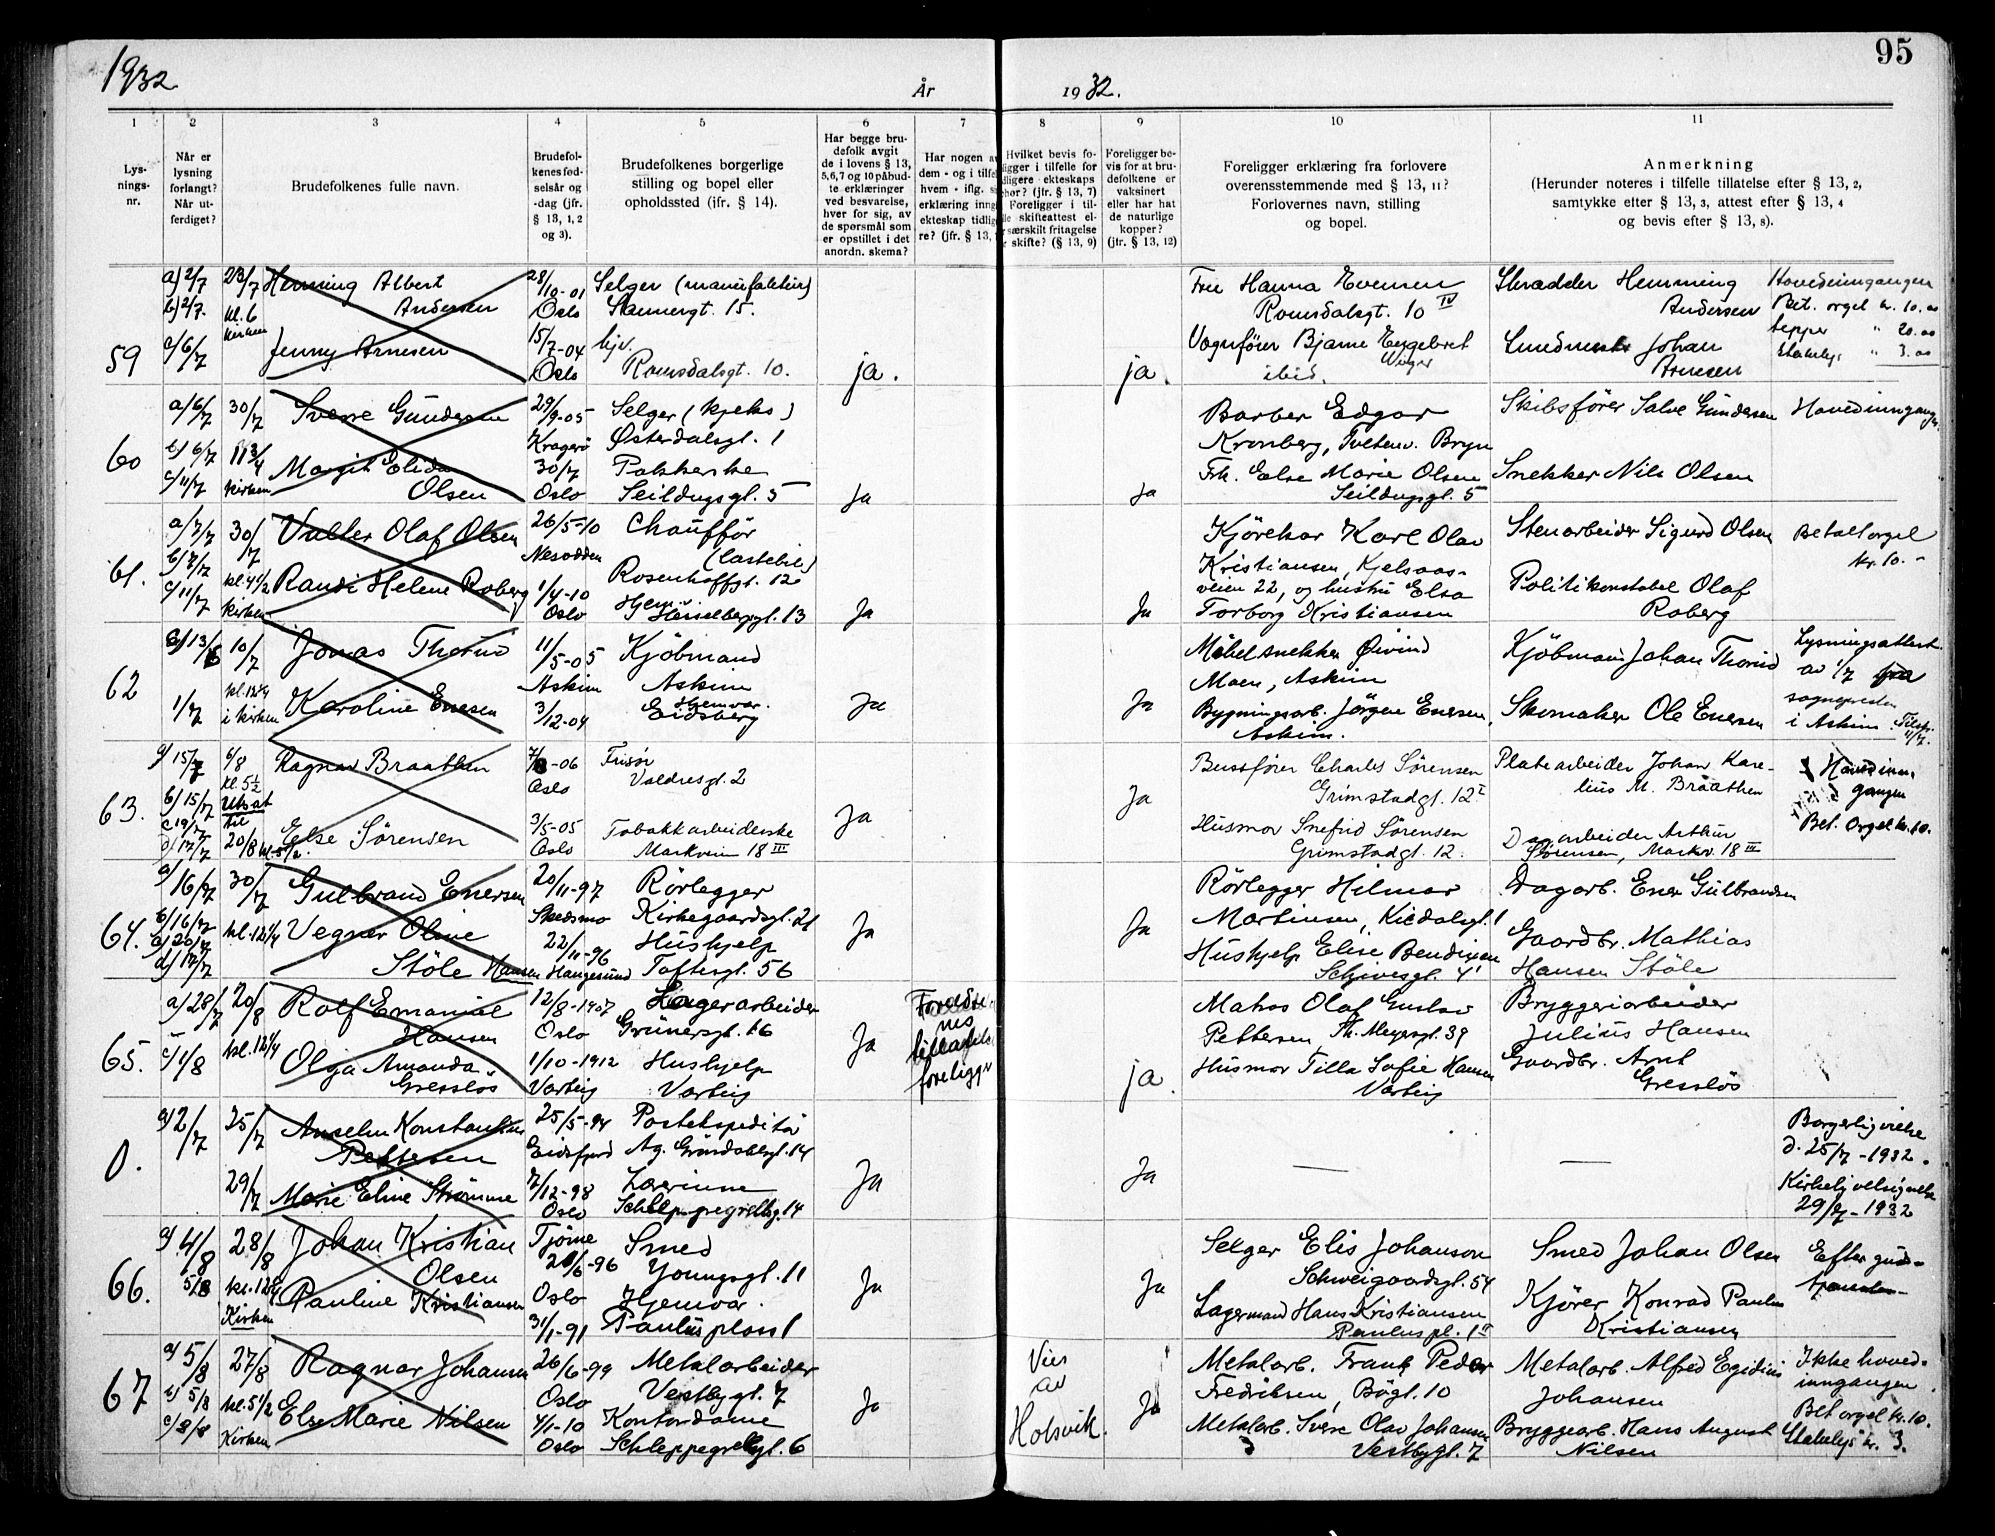 1932
År
1932.
95
1
2
3
4
5
6
7
8
9
10
11
Lys-
nings-
nr.
Når er
lysning
forlangt?
Når ut-
ferdiget?
Brudefolkenes fulle navn.
Brudefol-
kenes fød-
selsår og
-dag (jfr.
§ 13, 1, 2
og 3).
Brudefolkenes borgerlige
stilling og bopel eller
opholdssted (jfr. § 14).
Har begge bru-
defolk avgit
de i lovens § 13,
5,6,7 og 10 påbud-
te erklæringer
ved besvarelse,
hver for sig, av
de spørsmål som
er opstillet i det
anordn. skema?
Har nogen a
dem - og i tilfe
hvem - iflg.
erklæring inng
ekteskap tidlig
re? (jfr. § 13,
Hvilket bevis fo-
ligger i tilfelle for
dligere ekteskaps
hør? (jfr. § 13, 7)
Foreligger i til-
le skifteattest el-
særskilt fritagelse
skifte? (§ 13, 9)
Foreligger be-
vis for at bru-
defolkene er
vaksinert
eller har hat
de naturlige
kopper?
(jfr. § 13, 12)
Foreligger erklæring fra forlovere
overensstemmende med § 13, 11?
Forlovernes navn, stilling
og bopel.
Anmerkning
(Herunder noteres i tilfelle tillatelse efter § 13, 2,
samtykke efter § 13, 3, attest efter § 13, 4
og bevis efter § 13, 8).
59
a) 2/7
b) 2/7.
c/6/7
23/7
kl. 6
kirken
Henning Albert
Andersen
Jenny Arnesen
28/10-01
Oslo
15/7-04
Oslo
Selger (manufaktur)
Sannergt. 15.
hjv.
Romsdalsgt. 10.
ja.
ja.
Fru Hanna Evensen
Romsdalsgt. 10 IV
Vognfører Bjarne Engebret
Winger
ibid.
Skrædder Hemming
Andersen
Johan
Arnesen
Hovedinngangen
Bet. orgel kr. 10.00
tepper " 20.00
" 3.00
60
a/6/7
b) 6/7
c/11/7
30/7
kirken
Sverre Gundersen
Margit Elida
Olsen
29/9-05
Kragerø
30/7
Oslo
Selger (kjeks)
Østerdalsgt. 1
Pakkerske
Seildugsgt. 5
Ja
Ja
Barber Edgar
Kronberg, Tvetenv. Bryn
Frk. Else Marie Olsen
Seildugsgt. 5
Skibsfører Salve Gundersen
Snekker Nils Olsen
61.
a/7/7
b/7/7
c/11/7
30/7
kl. 4 1/2
kirken
Valter Olaf Olsen
Randi Helene Roberg
26/5-10
Nesodden
1/4-10
Oslo
Chauffør
(lastebil)
Rosenhoffgt. 12
Hjemv.
Hesselbergsgt. 13
Ja
Ja
Kjørekar Karl Olav
Kristiansen, Kjelsaas-
veien 22, og hustru Elsa
Torborg Kristiansen
Stenarbeider Sigurd Olsen
Politikonstabel Olaf
Roberg
Betalt orgel
kr. 10.-
62
1/7
10/7
kl. 12 1/4
i kirken
Jonas Thorud
Karoline Enersen
11/5-05
Askim
3/12-04
Kjøbmand
Askim
Hjemvær.
Eidsberg
Ja
Ja
Møbelsnekker Øivind
Moen, Askim
Bygningsarb. Jørgen Enersen,
Askim.
Kjøbmann Johan Thorud
Skomaker Ole Enersen
Lysningsattest
av 1/7 fra
sognepresten
i Askim
63.
a/15/7
b/15/7
6/8
kl. 5 1/2
Utsat
til
20/8 kl. 5 1/2.
Ragnar Braathen
Else Sørensen
Oslo
3/5-05
Oslo
Frisør
Valdresgt. 2
Tobakkarbeiderske
Markveien 18 III
Ja
Ja
Bussfører Charles Sørensen
Grimstadgt. 12 I
Husmor Snefrid Sørensen
Grimstadgt. 12.
Platearbeider Johan Kare-
lius M. Braathen
Dagarbeider Arthur
Sørensen, Markv. 18 III
Hovedinn-
gangen
Bet. Orgel kr. 10.
64.
a/16/7
b/16/7
c/20/7
30/7
kl. 12 1/4
Gulbrand Enersen
Vegner Oline
Støle Hansen
20/11-97
Skedsmo
22/11-96
Haugesund
Rørlegger
Kirkegaardsgt. 21
Hushjelp
Toftesgt. 56
Ja
Ja
Rørlegger Hilmar
Martinsen,
Hushjelp Elise Bendixen
Schivesgt. 4
Dagarb. Ener Gulbrandsen
Gaardbr. Mathias
Hansen Støle
65.
a/28/7
c/1/8
20/8
kl. 12 1/4
Rolf Emanuel
Hansen
Olga Amanda
Gresslös
12/8-1907
Oslo
1/10-1912
Varteig
Lagerarbeider
Grünersgt. 16
Hushjelp
Varteig
Ja
nes
tillatelse
foreligger
ja.
Matros Olaf Gustav
Pettersen, Th. Meyersgt. 39
Husmor Tilla Sofie Hansen
Varteig
Bryggeriarbeider
Julius Hansen
Gaardbr. Arnt
Gresslös
0.
a/2/7
25/7
29/7
Anselm Konstantin
Pettersen
Marie Eline Strømme
25/5-94
Eidsfjord
7/12-98
Oslo
Postekspeditør
Ag. Gründsbergt. 14
Lærerinne
Schleppegrellsg. 14
Ja
Ja
—
—
Borgerlig vielse
d. 25/7-1932.
Kirkelig velsignelse
29/7-1932
66.
a/4/8
5/8
28/8
kl. 12 1/4
Kirken
Johan Kristian
Olsen
Pauline Kristiansen
Tjøme
Oslo
31/1-91
Smed
Youngsgt. 11
Hjemvær.
Paulus plass 1
Ja
Ja
Selger Elis Johanson
Schweigaardsgt. 54
Lagermand Hans Kristiansen
Pauluspl. 1 II
Smed Johan Olsen
Kjører Konrad Paulus
Kristiansen
Efter guds-
tjenesten
67
a/5/8
b) 5/8
c/8/8
27/8
kl. 5 1/2
Kirken
Ragnar Johansen
Else Marie Nilsen
26/6-99
Oslo
4/1-10
Oslo
Metalarbeider
Vestbygt. 7
Kontordame
Schleppegrellsgt. 6
Ja
Vies
av
Holsvik.
Ja
Metalarb. Frank Peder
Fredriksen, Bøgt. 10
Metalarb. Sverre Olav Johansen
Vestbygt. 7
Metalarb. Alfred Egidius
Johansen
Bryggearb. Hans August
Nilsen
Ikke hoved-
inngangen.
Bet orgel kr. 10.
kr. 3.